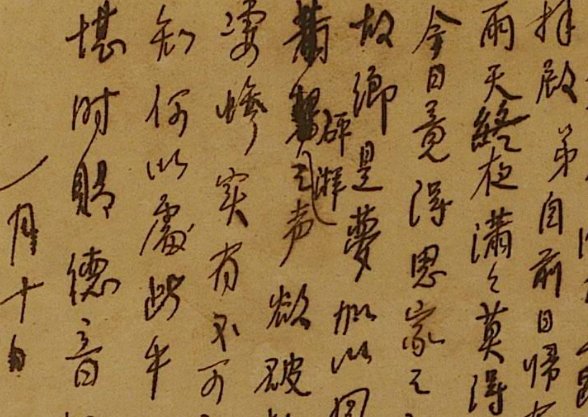 弟自前日帰
雨天終夜瀟々莫得
今日竟得思家之
故鄉是夢加以
砰湃
声欲破
凄惨实有不可
知何以處此乎
堪时賜德音
月十日